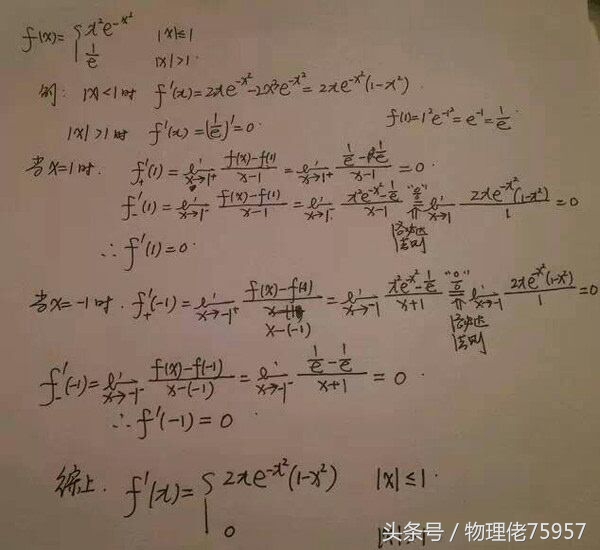 f(x)={ x²e^{-x²} |x|≤1
1/e |x|>1.
例: |x|<1时 f'(x)=2xe^{-x²}-2x³e^{-x²}=2xe^{-x²}(1-x²)
|x|>1时 f'(x)=(1/e)'=0. f(1)=1²e^{-1²}=e^{-1}=1/e
当x=1时. f'₊(1)=lim_{x→1⁺} (f(x)-f(1))/(x-1)=lim_{x→1⁺} (1/e-1/e)/(x-1)=0.
f'₋(1)=lim_{x→1⁻} (f(x)-f(1))/(x-1)=lim_{x→1⁻} (x²e^{-x²}-1/e)/(x-1) "0/0" = 洛必达法则 lim_{x→1} 2xe^{-x²}(1-x²)/1=0
∴f'(1)=0.
当x=-1时. f'₊(-1)=lim_{x→-1⁺} (f(x)-f(1))/(x-(-1))=lim_{x→-1} (x²e^{-x²}-1/e)/(x+1) "0/0" = 洛必达法则 lim_{x→-1} 2xe^{-x²}(1-x²)/1=0
f'₋(-1)=lim_{x→-1⁻} (f(x)-f(-1))/(x-(-1))=lim_{x→-1⁻} (1/e-1/e)/(x+1)=0.
∴f'(-1)=0
综上. f'(x)={ 2xe^{-x²}(1-x²) |x|≤1.
0
头条号/物理佬75957